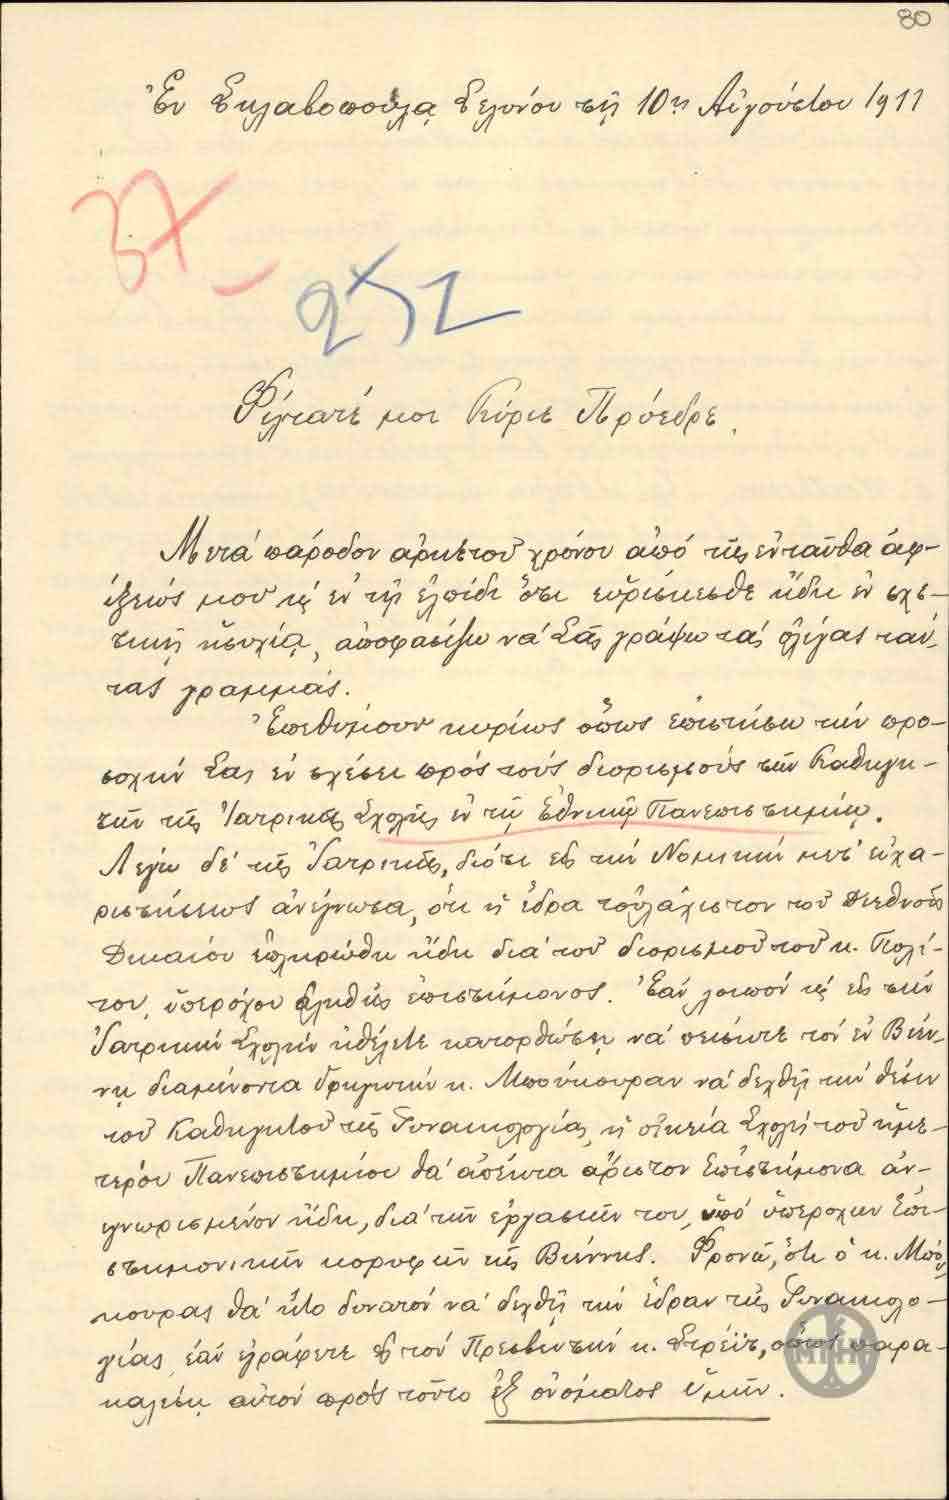 80
Ἐν Σκλαβοπούλᾳ Σελύνου τῇ 10ῃ Αὐγούστου 1911
37
252
Φίλτατέ μοι Κύριε Πρόεδρε,
Μετά πάροδον ἀρκετοῦ χρόνου ἀπό τῆς ἐνταῦθα ἀφ-
ίξεώς μου κ ἐν τῇ ἐλπίδι ὅτι εὑρίσκεσθε ἤδη ἐν σχε-
τικῇ ἡσυχίᾳ, ἀποφασίζω νά Σᾶς γράψω τάς ὀλίγας ταύ-
τας γραμμάς.
Ἐπεθύμουν κυρίως ὅπως ἐπιστήσω τήν προ-
σοχήν Σας ἐν σχέσει πρός τούς διορισμούς τῶν Καθηγη-
τῶν τῆς Ἰατρικῆς Σχολῆς ἐν τῷ Ἐθνικῷ Πανεπιστημίῳ.
Λέγω δέ τῆς Ἰατρικῆς, διότι εἰς τήν Νομικήν μετ' εὐχα-
ριστήσεως ἀνέγνωσα, ὅτι ἡ ἕδρα τοὐλάχιστον τοῦ Διεθνοῦς
Δικαίου ἐπληρώθη ἤδη διά τοῦ διορισμοῦ τοῦ κ. Πολί-
του, ὑπερόχου ἀληθῶς ἐπιστήμονος. Ἐάν λοιπόν κ εἰς τήν
Ἰατρικήν Σχολήν ἠθέλετε κατορθώσῃ νά πείσητε τόν ἐν Βιέν-
νῃ διαμένοντα ὑφηγητήν κ. Μπούκουραν νά δεχθῇ τήν θέσιν
τοῦ Καθηγητοῦ τῆς Γυναικολογίας, ἡ οἰκεία Σχολή τοῦ ἡμε-
τέρου Πανεπιστημίου θά ἀπέκτα ἄριστον ἐπιστήμονα ἀν-
εγνωρισμένον ἤδη, διά τῶν ἐργασιῶν του, ὑπό ὑπερόχων ἐπι-
στημονικῶν κορυφῶν τῆς Βιέννης. Φρονῶ, ὅτι ὁ κ. Μπού-
κουρας θά ἦτο δυνατόν νά δεχθῇ τήν ἕδραν τῆς Γυναικολο-
γίας, ἐάν ἐγράφετε εἰς τόν Πρεσβευτήν κ. Στρέϊτ, ὅπως παρα-
καλέσῃ αὐτόν πρός τοῦτο ἐξ ὀνόματος ὑμῶν.